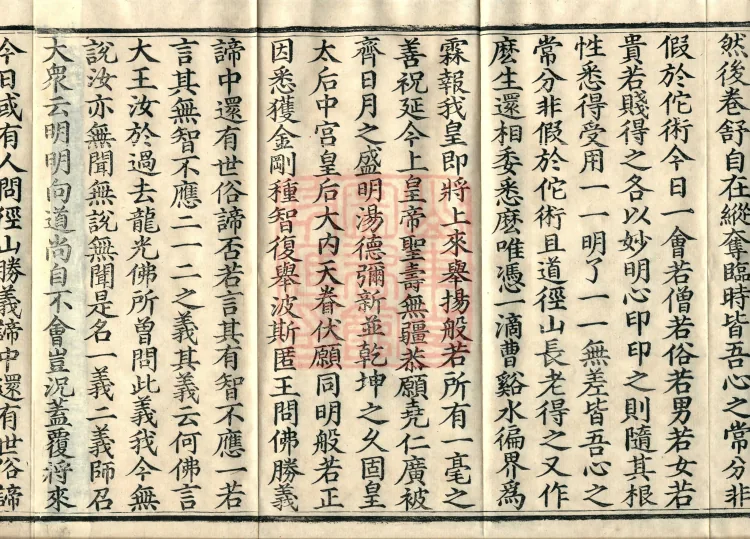 然後卷舒自在縱奪臨時皆吾心之常分非
假於佗術今日一會若僧若俗若男若女若
貴若賤得之各以妙明心印印之則隨其根
性悉得受用一一明了一一無差皆吾心之
常分非假於佗術且道徑山長老得之又作
麽生還相委悉麽唯憑一滴曹谿水徧界爲
霖報我皇即將上來舉揚般若所有一毫之
善祝延今上皇帝聖壽無疆恭願堯仁廣被
齊日月之盛明湯德彌新並乾坤之久固皇
太后中宮皇后大内天眷伏願同明般若正
因悉獲金剛種智復舉波斯匿王問佛勝義
諦中還有世俗諦否若言其有智不應一若
言其無智不應二一二之義其義云何佛言
大王汝於過去龍光佛所曽問此義我今無
說汝亦無聞無說無聞是名一義二義師召
大衆云明明向道尚自不會豈況蓋覆將來
今日或有人問徑山勝義諦中還有世俗諦